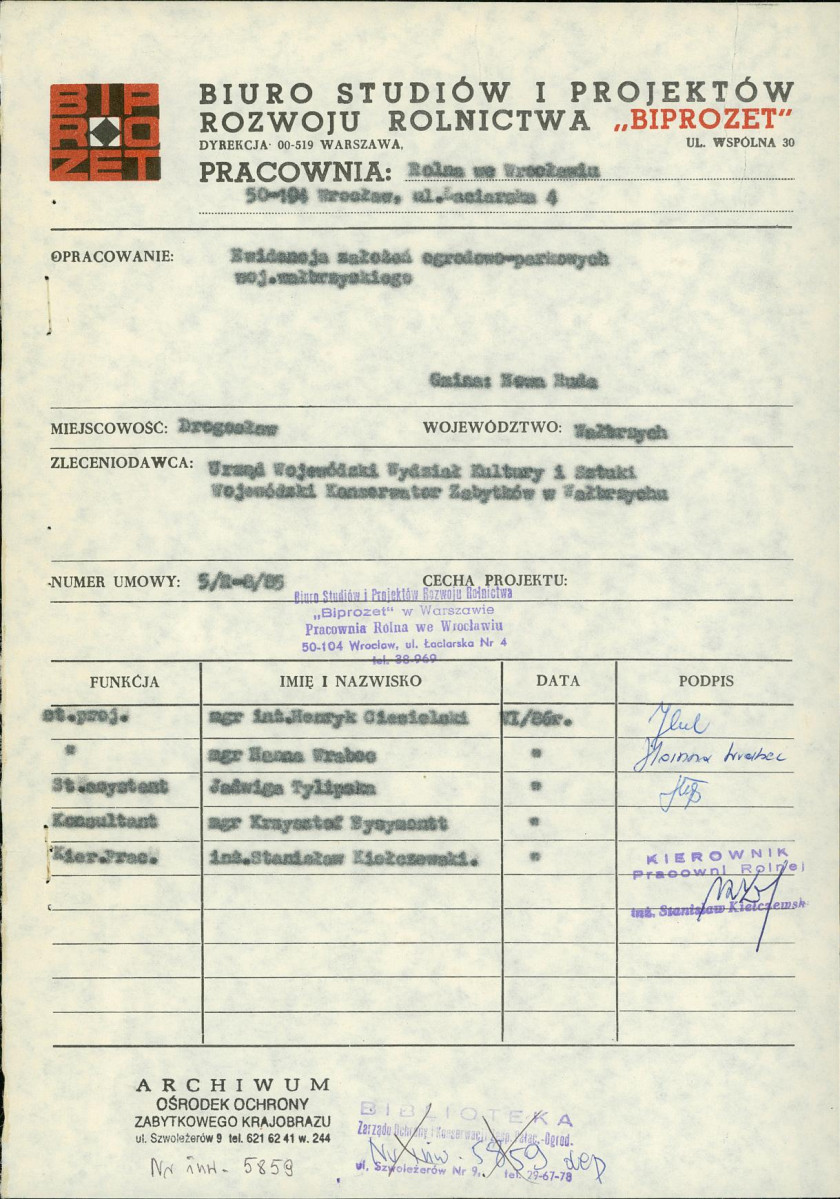 BIPROZET
BIURO STUDIÓW I PROJEKTÓW
ROZWOJU ROLNICTWA „BIPROZET"
DYREKCJA· 00-519 WARSZAWA, UL. WSPÓLNA 30
PRACOWNIA: Rolna we Wrocławiu
50-104 Wrocław, ul.Łaciarska 4
OPRACOWANIE: Ewidencja założeń ogrodowo-parkowych
woj.wałbrzyskiego
Gmina: Nowa Ruda
MIEJSCOWOŚĆ: Drogosław WOJEWÓDZTWO: Wałbrzych
ZLECENIODAWCA: Urząd Wojewódzki Wydział Kultury i Sztuki
Wojewódzki Konserwator Zabytków w Wałbrzychu
NUMER UMOWY: 5/R-8/85 CECHA PROJEKTU:
Biuro Studiów i Projektów Rozwoju Rolnictwa
„Biprozet" w Warszawie
Pracownia Rolna we Wrocławiu
50-104 Wrocław, ul. Łaciarska Nr 4
tel. 38-969
FUNKCJA IMIĘ I NAZWISKO DATA PODPIS
st.proj. mgr inż.Henryk Ciesielski VI/86r.
" mgr Hanna Wrabec " Hanna Wrabec
St.asystent Jadwiga Tylipska "
Konsultant mgr Krzysztof Eysymontt "
Kier.Prac. inż.Stanisław Kiełczewski. "
KIEROWNIK
Pracowni Rolnej
inż. Stanisław Kiełczewsk
ARCHIWUM
OŚRODEK OCHRONY
ZABYTKOWEGO KRAJOBRAZU
ul. Szwoleżerów 9 tel. 621 62 41 w. 244
Nr inw. 5859
BIBLIOTEKA
Zarządu Ochrony i Konserwacji Zesp. Pałac.-Ogrod.
Nr inw. 5859 dep
ul. Szwoleżerów Nr 9, tel. 29-67-78